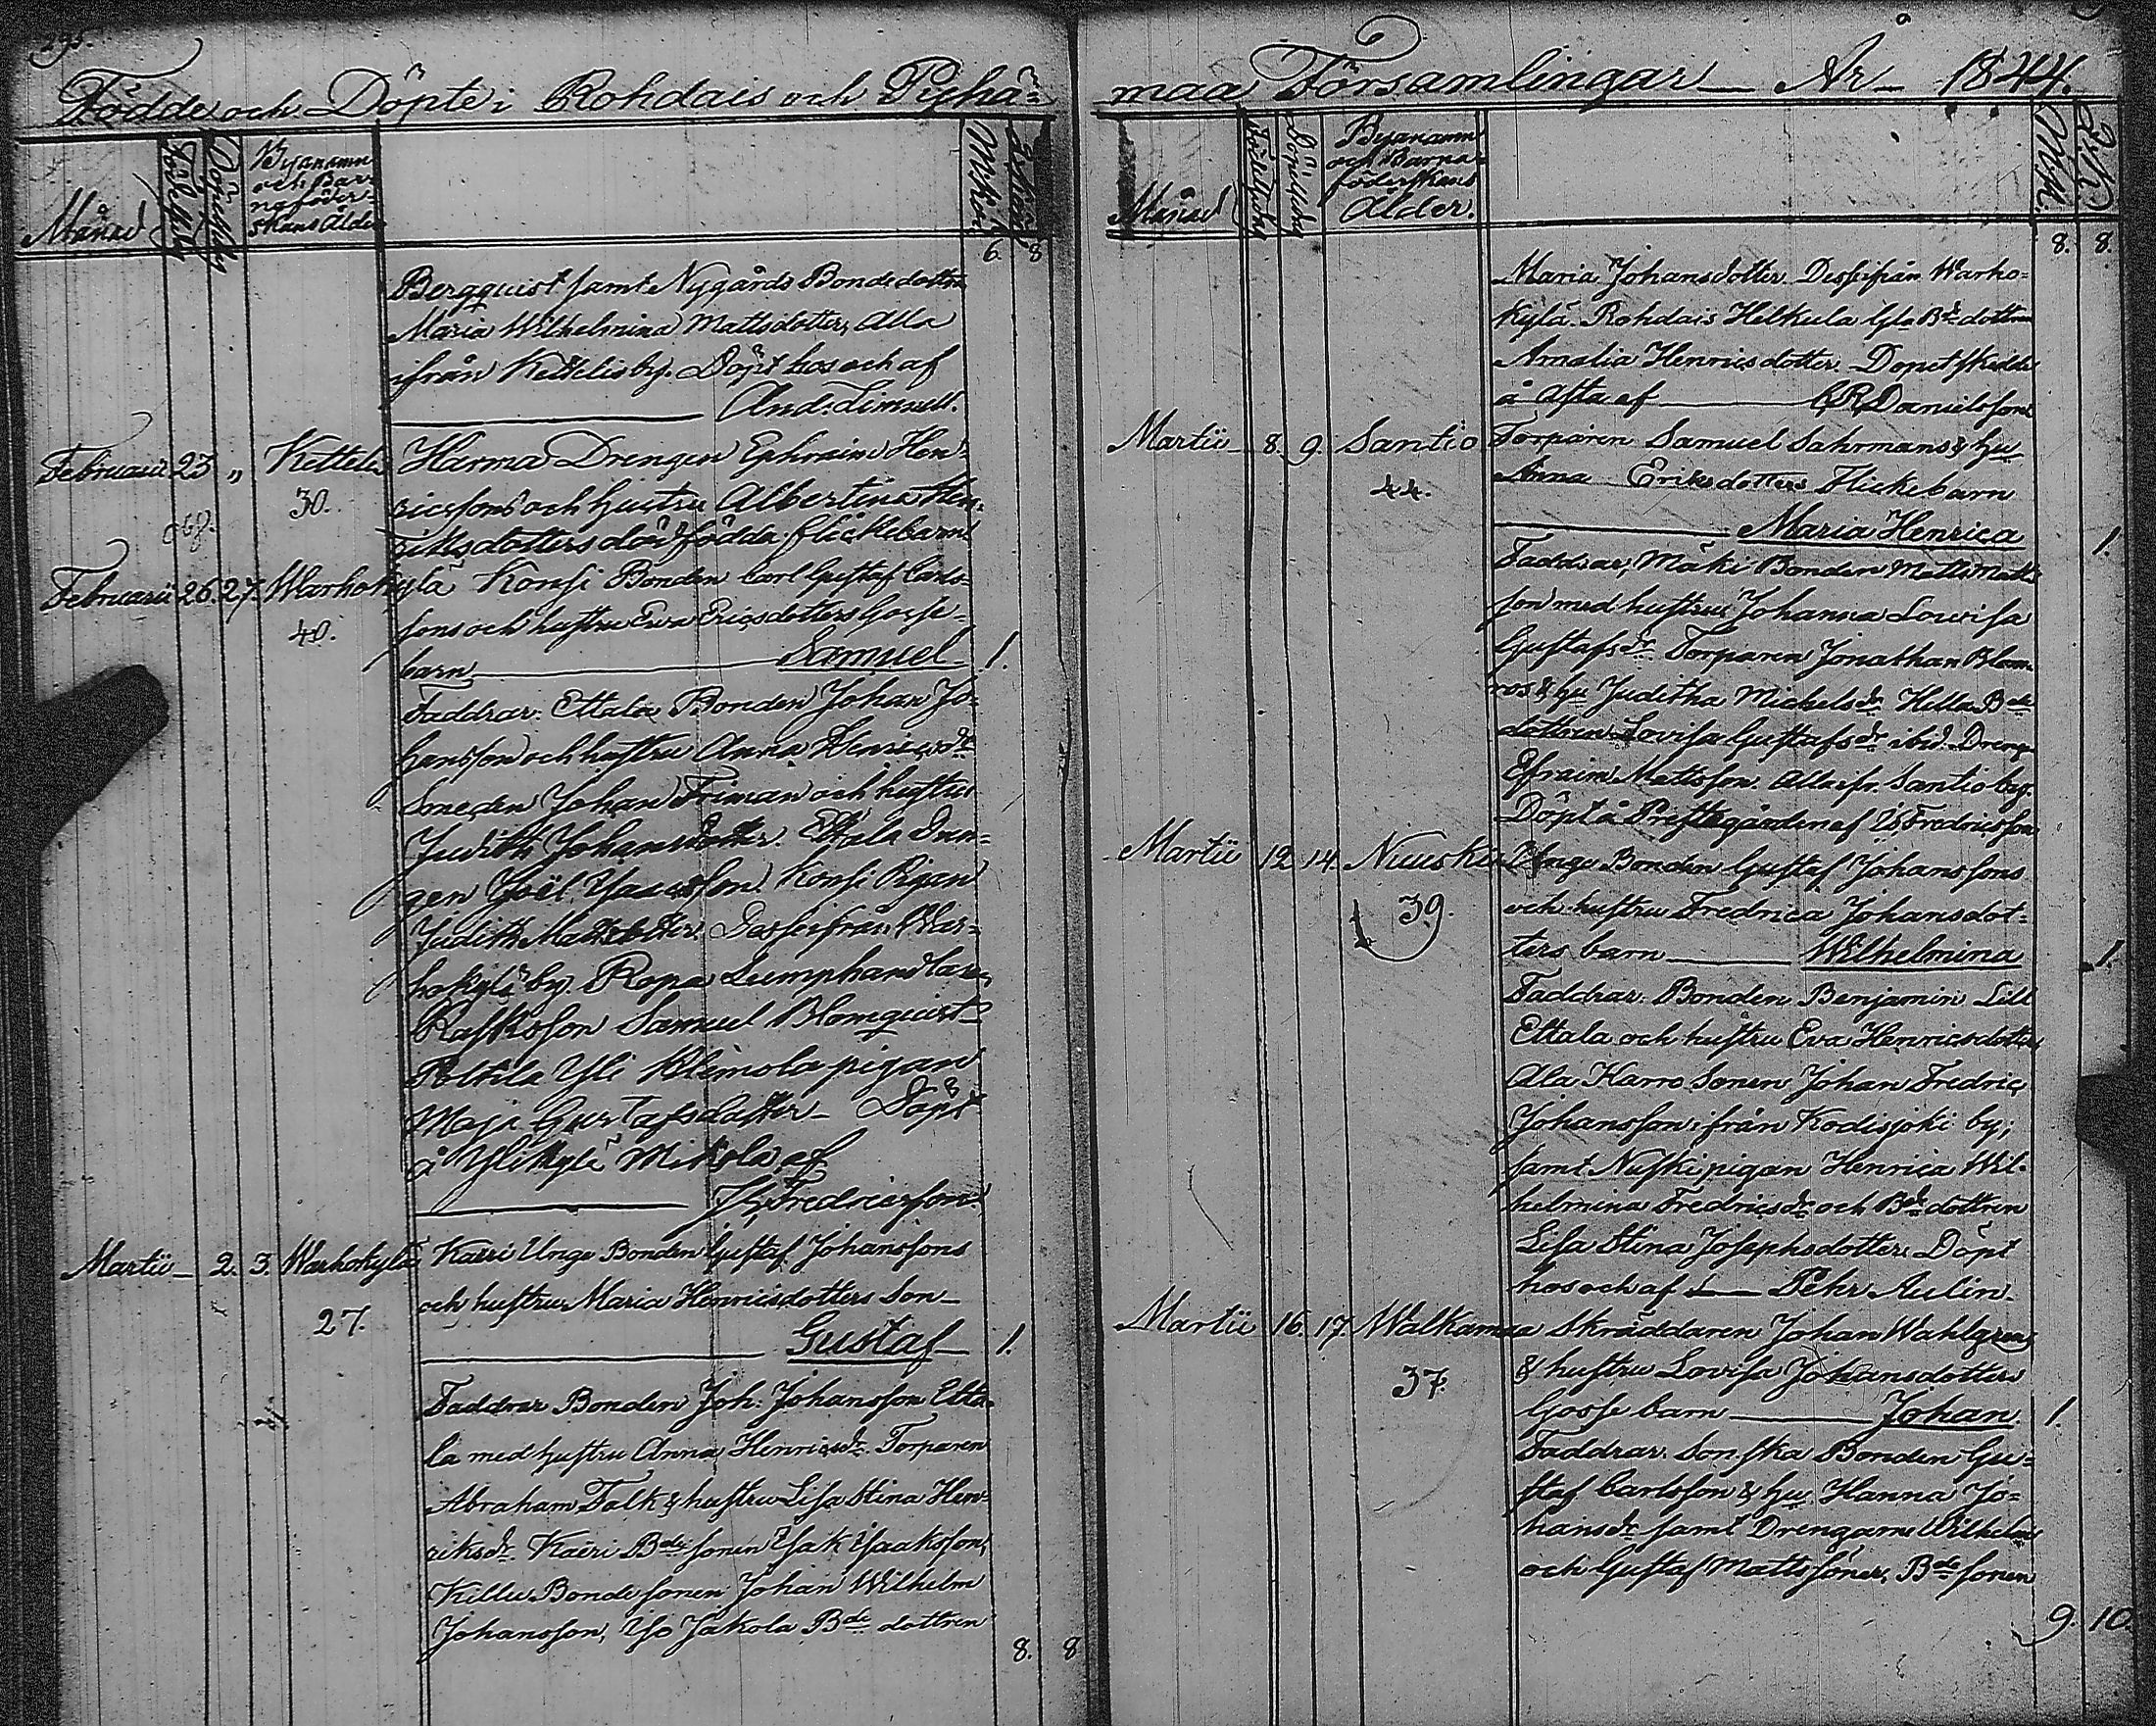 295.
Födde och Döpte i Rohdais och Pyhä-
Månad
Födelsedag
Döpelsedag
Byanamn
och Bar-
naföder-
skans Ålder
Mankön
Qvinkön
6. 8
Bergquist samt Nygårds Bondedottren
Maria Wilhelmina Mattsdotter, Alla
ifrån Kettelis by. Döpt hos och af
And. Limnell.
Februarii 23 „ Kettelis Harma Drengen Ephraim Hen-
30. ricssons och hustru Albertina Hen-
riksdotters dödfödda flickebarn
Februarii 26. 27. Warhokylä Konsi Bonden Carl Gustaf Carls-
40. sons och hustru Ewa Ericsdotters Gosse-
barn Samuel 1.
Faddrar: Ettala Bonden Johan Jo-
hansson och hustru Anna Henricsdr
Smeden Johan Friman och hustru
Judith Johansdotter. Ettala Dren-
gen Joël Isacsson. Konsi Pigan
Judith Mattsdotter. Desse ifrån War-
hokylä by. Ropa Lumphandlare,
Samuel Blomquist
Poltila Yli Klemola pigan
Maja Gustafsdotter Döpt
å Ylikylä Mikola af
Fredricsson.
Martii 2. 3. Warhokylä Kaeri Unge Bonden Gustaf Johanssons
27. och hustru Maria Henricsdotters Son
Gustaf 1.
Faddrar Bonden Joh: Johansson Etta-
la med hustru Anna Henricsdr. Torparen
Abraham Falk & hustru Lisa Stina Hen-
riksdr. Kaeri Bde sonen Isak Isaksson,
Killu Bonde sonen Johan Wilhelm
Johansson, Iso Jakola Bde dottren
8. 8
maa Församlingar År 1844.
Månad
Födelsedag
Döpelsedag
Byanamn
och Barna-
föderskans
Ålder.
Mk.
Qk.
8. 8.
Maria Johansdotter. Desse ifrån Warho-
kylä. Rohdais Helkula Gla Bde dottren
Amalia Henricsdotter. Dopet skedde
å Asta af C R Danielsson
Martii 8. 9. Santio Torparen Samuel Sahrmans & hu
44. Anna Eriksdotters Flickebarn
Maria Henrica 1.
Faddrar; Mäki Bonden Matts Matts-
son med hustru Johanna Lowisa
Gustafsdr. Torparen Jonathan Blom-
ros & hu Juditha Michelsdr. Hella Bde
dottren Lovisa Gustafsdr ibid. Dreng.
Efraim Mattsson. Alla ifr. Santio by.
Döpt å Prestegården af Is. Fredricsson
Martii 12. 14. Nuuski Unge Bonden Gustaf Johanssons
39. och hustru Fredrica Johansdot-
ters barn Wilhelmina 1.
Faddrar: Bonden Benjamin Lill
Ettala och hustru Eva Henricsdotter,
Ala Harro Sonen Johan Fredric
Johansson ifrån Kodisjoki by;
samt Nuski pigan Henrica Wil-
helmina Fredricsdr och Bde dottren
Lisa Stina Josephsdotter. Döpt
hos och af Pehr Aulin.
Martii 16. 17. Walkamaa Skräddaren Johan Wahlgrens
37. & hustru Lovisa Johansdotters
Gosse barn Johan. 1.
Faddrar. Sonska Bonden Gu-
staf Carlsson & hu. Hanna Jo-
hansdr samt Drengarne Wilhelm
och Gustaf Mattssöner, Bde sonen
9. 10.